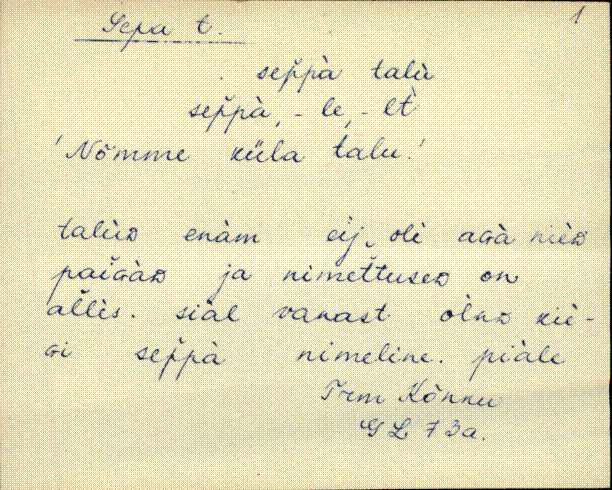 Sepa t. 1
sep̆p̀à talù
sep̆p̀à, -le, -lt̀
'Nõmme küla talu.'
talùᴅ enàm eij‿oli aɢà nièᴅ
paĭɢàᴅ ja nimet̆tuseᴅ on
al̆lès. siäl vanast olnᴅ kiè-
ɢi sep̆p̀à nimeline. piàle
Trm Kõnnu
GL 73a.